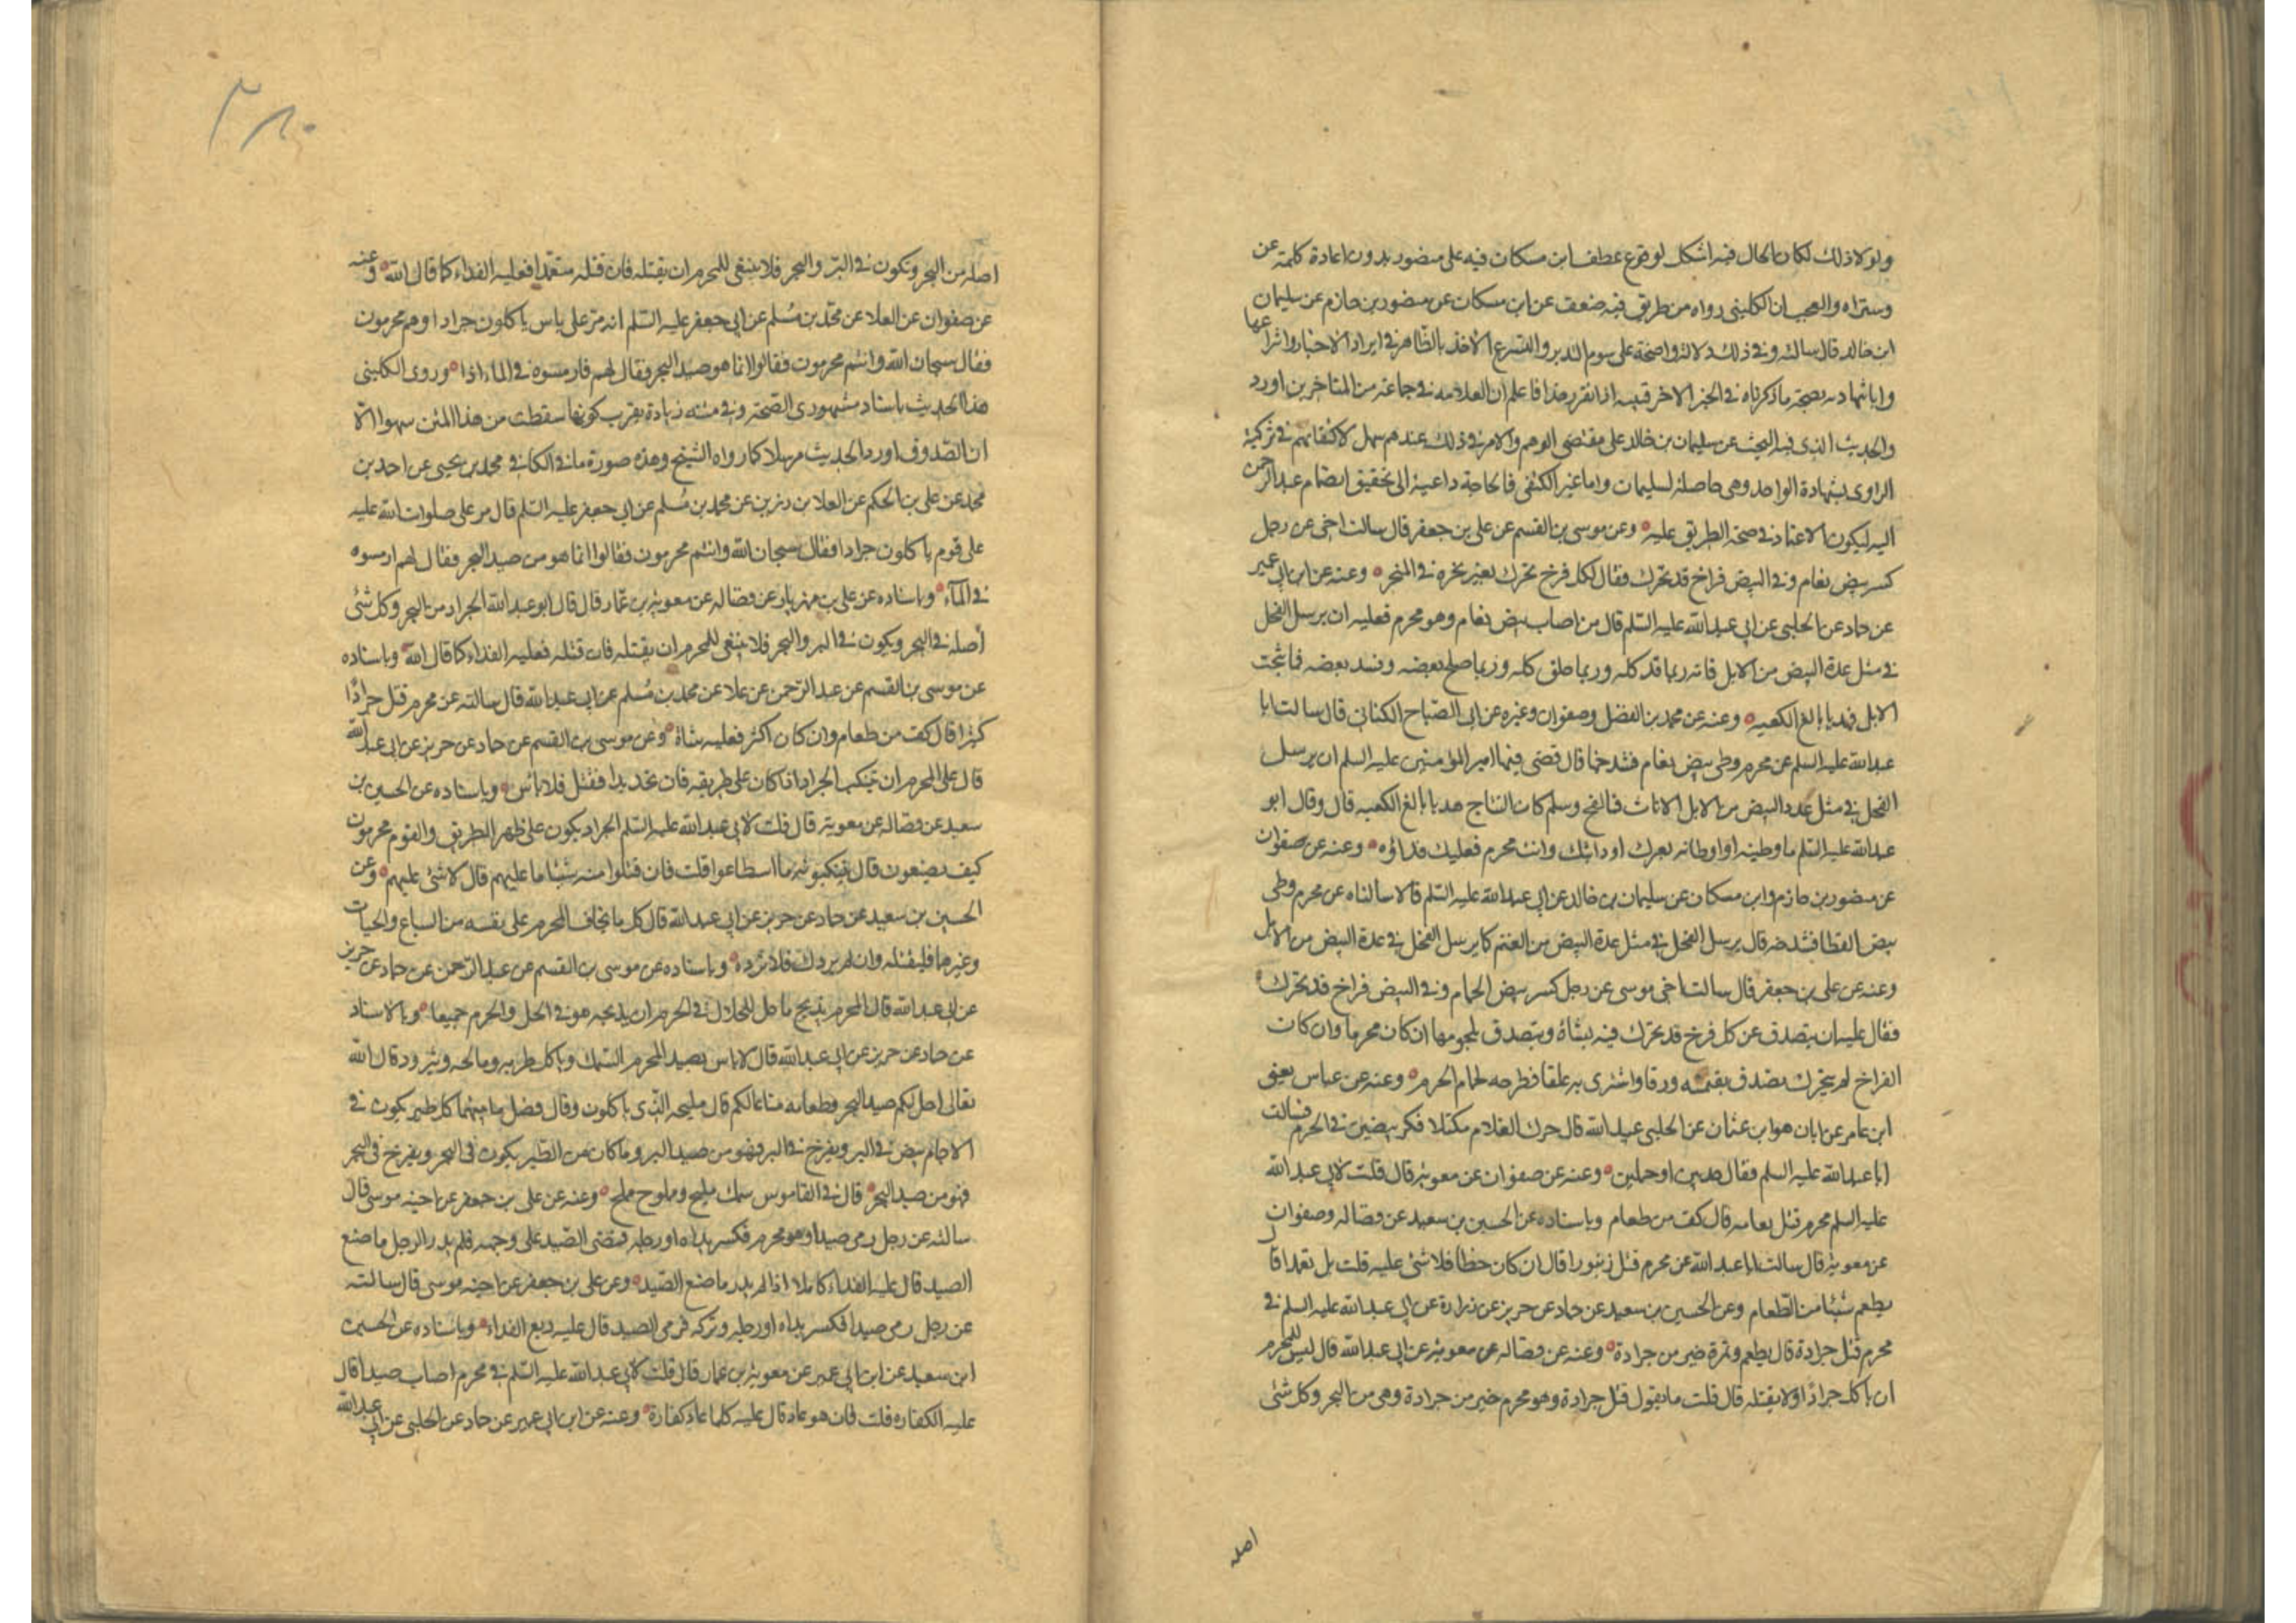 ولولا ذلك لكان الحال فيه اشكل لوقوع عطف ابن مسكان فيه على منصور بدون اعادة كلمة عن
وستراه والعجب ان الكليني رواه من طريق فيه ضعف عن ابن مسكان عن منصور بن حازم عن سليمان
ابن خالد قال سالته وفي ذلك دلالة واضحة على سوم التدبر والتسرع الاخذ بالظاهر في ايراد الاخبار وانتزاعها
وايا شهادته بصحة ما ذكرناه في الخبر الاخر قبيه اذا تقرر هذا فاعلم ان العلامه في جماعة من المتاخرين اورد
والحديث الذي فيه البحث عن سليمان بن خالد على مقتضى الوهم والامر في ذلك عندهم سهل لاكتفائهم في تزكية
الراوى بشهادة الواحد وهي حاصلة لسليمان واما غير المكتفي فالحاجة داعية الى تحقيق انضمام عبد الرحمن
اليه ليكون الاعتماد في صحة الطريق عليه وعن موسى بن القسم عن علي بن جعفر قال سالت اخي عن رجل
كسر بيض نعام وفي البيض فراخ قد تحرك فقال لكل فرخ تحرك بعير ينحره في المنحر وعنه عن ابن ابي عمير
عن حماد عن الحلبي عن ابي عبد الله عليه السلم قال من اصاب بيض نعام وهو محرم فعليه ان يرسل الفحل
في مثل عدة البيض من الابل فانه ربما فسد كله وربما خلق كله وربما صلح بعضه وفسد بعضه فما نتجت
الابل فهديا بالغ الكعبه وعنه عن محمد بن الفضل وصفوان وغيره عن ابي الصباح الكناني قال سالت ابا
عبد الله عليه السلم عن محرم وطي بيض نعام فشدخها قال قضى فيها امير المؤمنين عليه السلم ان يرسل
الفحل في مثل عدد البيض من الابل الاناث فما لقح وسلم كان النتاج هديا بالغ الكعبه قال وقال ابو
عبد الله عليه السلم ما وطيته او اوطأته بعيرك او دابتك وانت محرم فعليك فداؤه وعنه عن صفوان
عن منصور بن حازم وابن مسكان عن سليمان بن خالد عن ابي عبد الله عليه السلم قالا سالناه عن محرم وطي
بيض القطا فشدخه قال يرسل الفحل في مثل عدة البيض من الغنم كما يرسل الفحل في عدة البيض من الابل
وعنه عن علي بن جعفر قال سالت اخي موسى عن رجل كسر بيض الحمام وفي البيض فراخ قد تحرك
فقال عليه ان يتصدق عن كل فرخ قد تحرك فيه بشاة ويتصدق بلحومها ان كان محرما وان كانت
الفراخ لم يتحرك تصدق بقيمته ورقا واشترى به علفا فطرحه لحمام الحرم وعنه عن عباس يعني
ابن عامر عن ابان هو ابن عثمان عن الحلبي عبيد الله قال حرك الغلام مكتلا فكسر بيضتين في الحرم فسالت
ابا عبد الله عليه السلم فقال جديين او حملين وعنه عن صفوان عن معوية قال قلت لابي عبد الله
عليه السلم محرم قتل نعامه قال كف من طعام وباسناده عن الحسين بن سعيد عن فضاله وصفوان
عن معوية قال سالت ابا عبد الله عن محرم قتل زنبورا قال ان كان خطأ فلا شئ عليه قلت بل تعمدا قال
يطعم شيئا من الطعام وعن الحسين بن سعيد عن حماد عن حريز عن زرارة عن ابي عبد الله عليه السلم في
محرم قتل جرادة قال يطعم وتمرة خير من جرادة وعنه عن فضاله عن معوية عن ابي عبد الله قال ليس للمحرم
ان ياكل جرادًا ولا يقتله قال قلت ما يقول قتل جرادة وهو محرم خير من جرادة وهي من البحر وكل شئ
اصله
اصله من البحر وتكون في البر والبحر فلا ينبغي للمحرم ان يقتله فان قتله متعمدا فعليه الفداء كما قال الله وعنه
عن صفوان عن العلا عن محمد بن مسلم عن ابي جعفر عليه السلم انه مر على ناس ياكلون جرادا وهم محرمون
فقال سبحان الله وانتم محرمون فقالوا انما هو صيد البحر فقال لهم فارمسوه في الماء اذا وروى الكليني
هذا الحديث باسناد مشهوري الصحة وفي متنه زيادة يقرب كونها سقطت من هذا المتن سهوا الا
ان الصدوق اورد الحديث مرسلا كما رواه الشيخ وهذه صورة ما في الكافي محمد بن يحيى عن احمد بن
محمد عن علي بن الحكم عن العلا بن رزين عن محمد بن مسلم عن ابي جعفر عليه السلم قال مر علي صلوات الله عليه
على قوم ياكلون جرادا فقال سبحان الله وانتم محرمون فقالوا انما هو من صيد البحر فقال لهم ارمسوه
في الماء وباسناده عن علي بن مهزيار عن فضاله عن معوية بن عمار قال قال ابو عبد الله الجراد من البحر وكل شئ
أصله في البحر ويكون في البر والبحر فلا ينبغي للمحرم ان يقتله فان قتله فعليه الفداء كما قال الله وباسناده
عن موسى بن القسم عن عبد الرحمن عن علا عن محمد بن مسلم عن ابي عبد الله قال سالته عن محرم قتل جرادًا
كثيرا قال كف من طعام وان كان اكثر فعليه شاة وعن موسى بن القسم عن حماد عن حريز عن ابي عبد الله
قال على المحرم ان تنكب الجراد اذا كان على طريقه فان لم يجد بدا فقتل فلا باس وباسناده عن الحسين بن
سعيد عن فضاله عن معوية قال قلت لابي عبد الله عليه السلم الجراد يكون على ظهر الطريق والقوم محرمون
كيف يصنعون قال يتنكبونه ما استطاعوا قلت فان قتلوا منه شيئا ما عليهم قال لا شئ عليهم وعن
الحسين بن سعيد عن حماد عن حريز عن ابي عبد الله قال كل ما يخاف المحرم على نفسه من السباع والحيات
وغيرها فليقتله وان لم يردك فلا ترده وباسناده عن موسى بن القسم عن عبد الرحمن عن حماد عن حريز
عن ابي عبد الله قال المحرم يذبح ما حل للحلال في الحرم ان يذبحه هو في الحل والحرم جميعا وبالاسناد
عن حماد عن حريز عن ابي عبد الله قال لا باس بصيد المحرم السمك وياكل طريه ومالحه ويتزود قال الله
تعالى احل لكم صيد البحر وطعامه متاعا لكم قال مليحه الذي ياكلون وقال فصل ما بينهما كل طير يكون في
الاجام يبيض في البر ويفرخ في البر فهو من صيد البر وما كان من الطير يكون في البحر ويفرخ في البحر
فهو من صيد البحر قال في القاموس سمك مليح ومملوح مملح وعنه عن علي بن جعفر عن اخيه موسى قال
سالته عن رجل رمى صيدا وهو محرم فكسر يداه او رجله فمضى الصيد على وجهه فلم يدر الرجل ما صنع
الصيد قال عليه الفداء كاملا اذا لم يدر ما صنع الصيد وعن علي بن جعفر عن اخيه موسى قال سالته
عن رجل رمى صيدا فكسر يداه او رجله وتركه فرمى الصيد قال عليه ربع الفداء وباسناده عن الحسين
ابن سعيد عن ابن ابي عمير عن معوية بن عمار قال قلت لابي عبد الله عليه السلم في محرم اصاب صيدا قال
عليه الكفاره قلت فان هو عاد قال عليه كلما عاد كفارة وعنه عن ابن ابي عمير عن حماد عن الحلبي عن ابي عبد الله